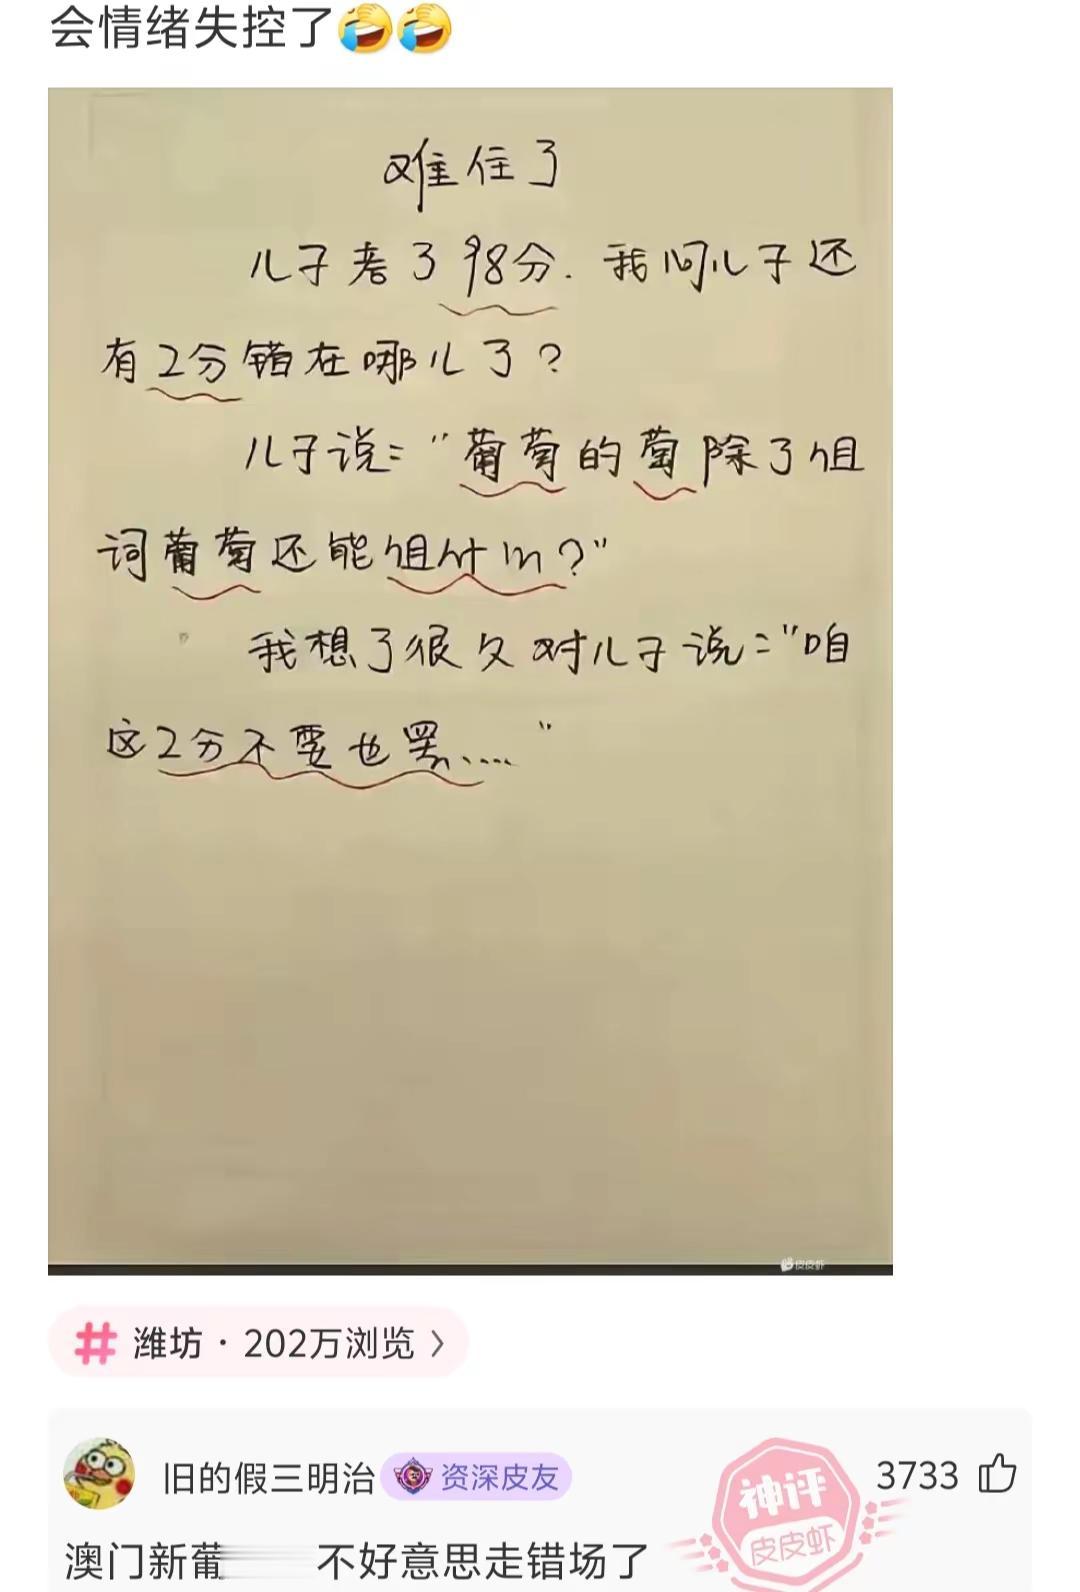 会情绪失控了🤣🤣
难住了
儿子考了98分.我问儿子还
有2分错在哪儿了?
儿子说:"葡萄的萄除了组
词葡萄还能组什么?"
我想了很久对儿子说:"咱
这2分不要也罢....."
皮皮虾
# 潍坊 · 202万浏览 >
旧的假三明治 资深皮友 神评 皮皮虾 3733
澳门新葡 不好意思走错场了